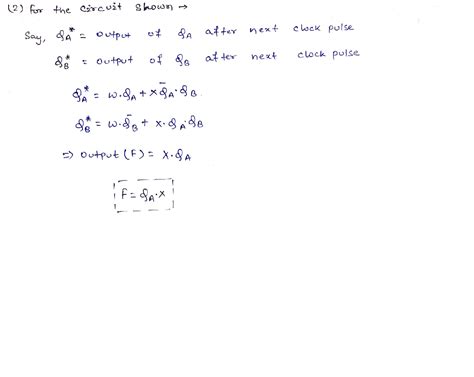 (2) For the circuit shown →
Say, Q_A* = output of Q_A after next clock pulse
Q_B* = output of Q_B after next clock pulse
Q_A* = w·Q_A + x Q̄_A·Q_B
Q_B* = w·Q̄_B + x·Q_A·Q_B
⇒ output (F) = x·Q_A
F = Q_A·x